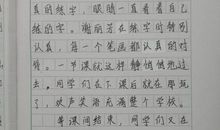 真的练字，眼睛一直看着自己
练的字。谢丽芳在练字时特别
认真，每一个笔画都认真的对
待。一节课就这样静悄悄地过
去。同学们在下课后就在那玩
了，欢声笑语充满整个学校。
等课间结束，同学们又在